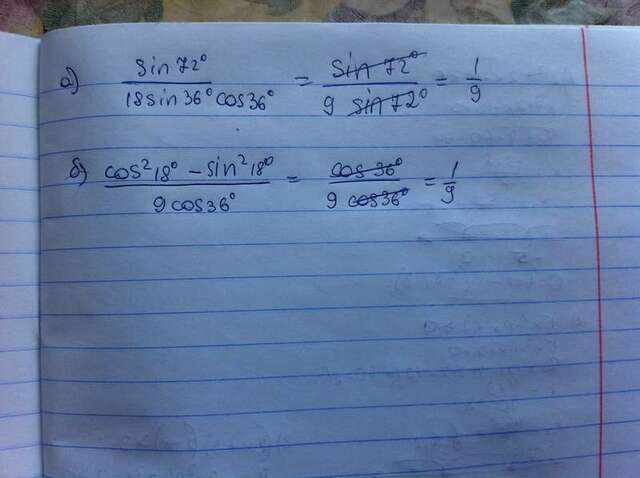 а) sin 72° / 18 sin 36° cos 36° = sin 72° / 9 sin 72° = 1/9
б) cos² 18° - sin² 18° / 9 cos 36° = cos 36° / 9 cos 36° = 1/9